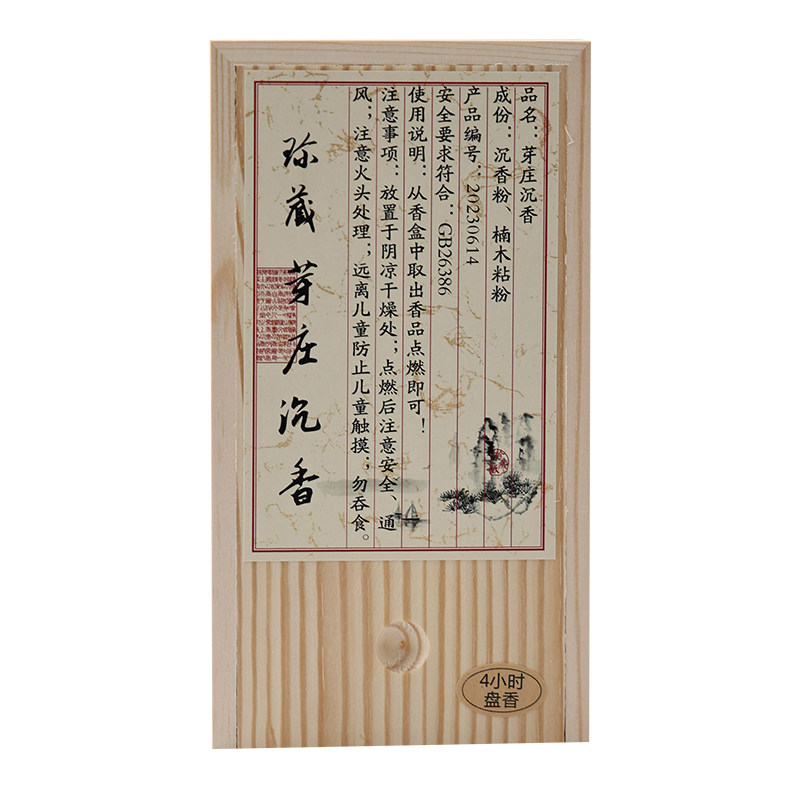 品名：芽庄沉香
成份：沉香粉、楠木粘粉
产品编号：20230614
安全要求符合：GB26386
使用说明：从香盒中取出香品点燃即可！
注意事项：放置于阴凉干燥处；点燃后注意安全、通
风；注意火头处理；远离儿童防止儿童触摸；勿吞食。
珍藏芽庄沉香
4小时
盘香